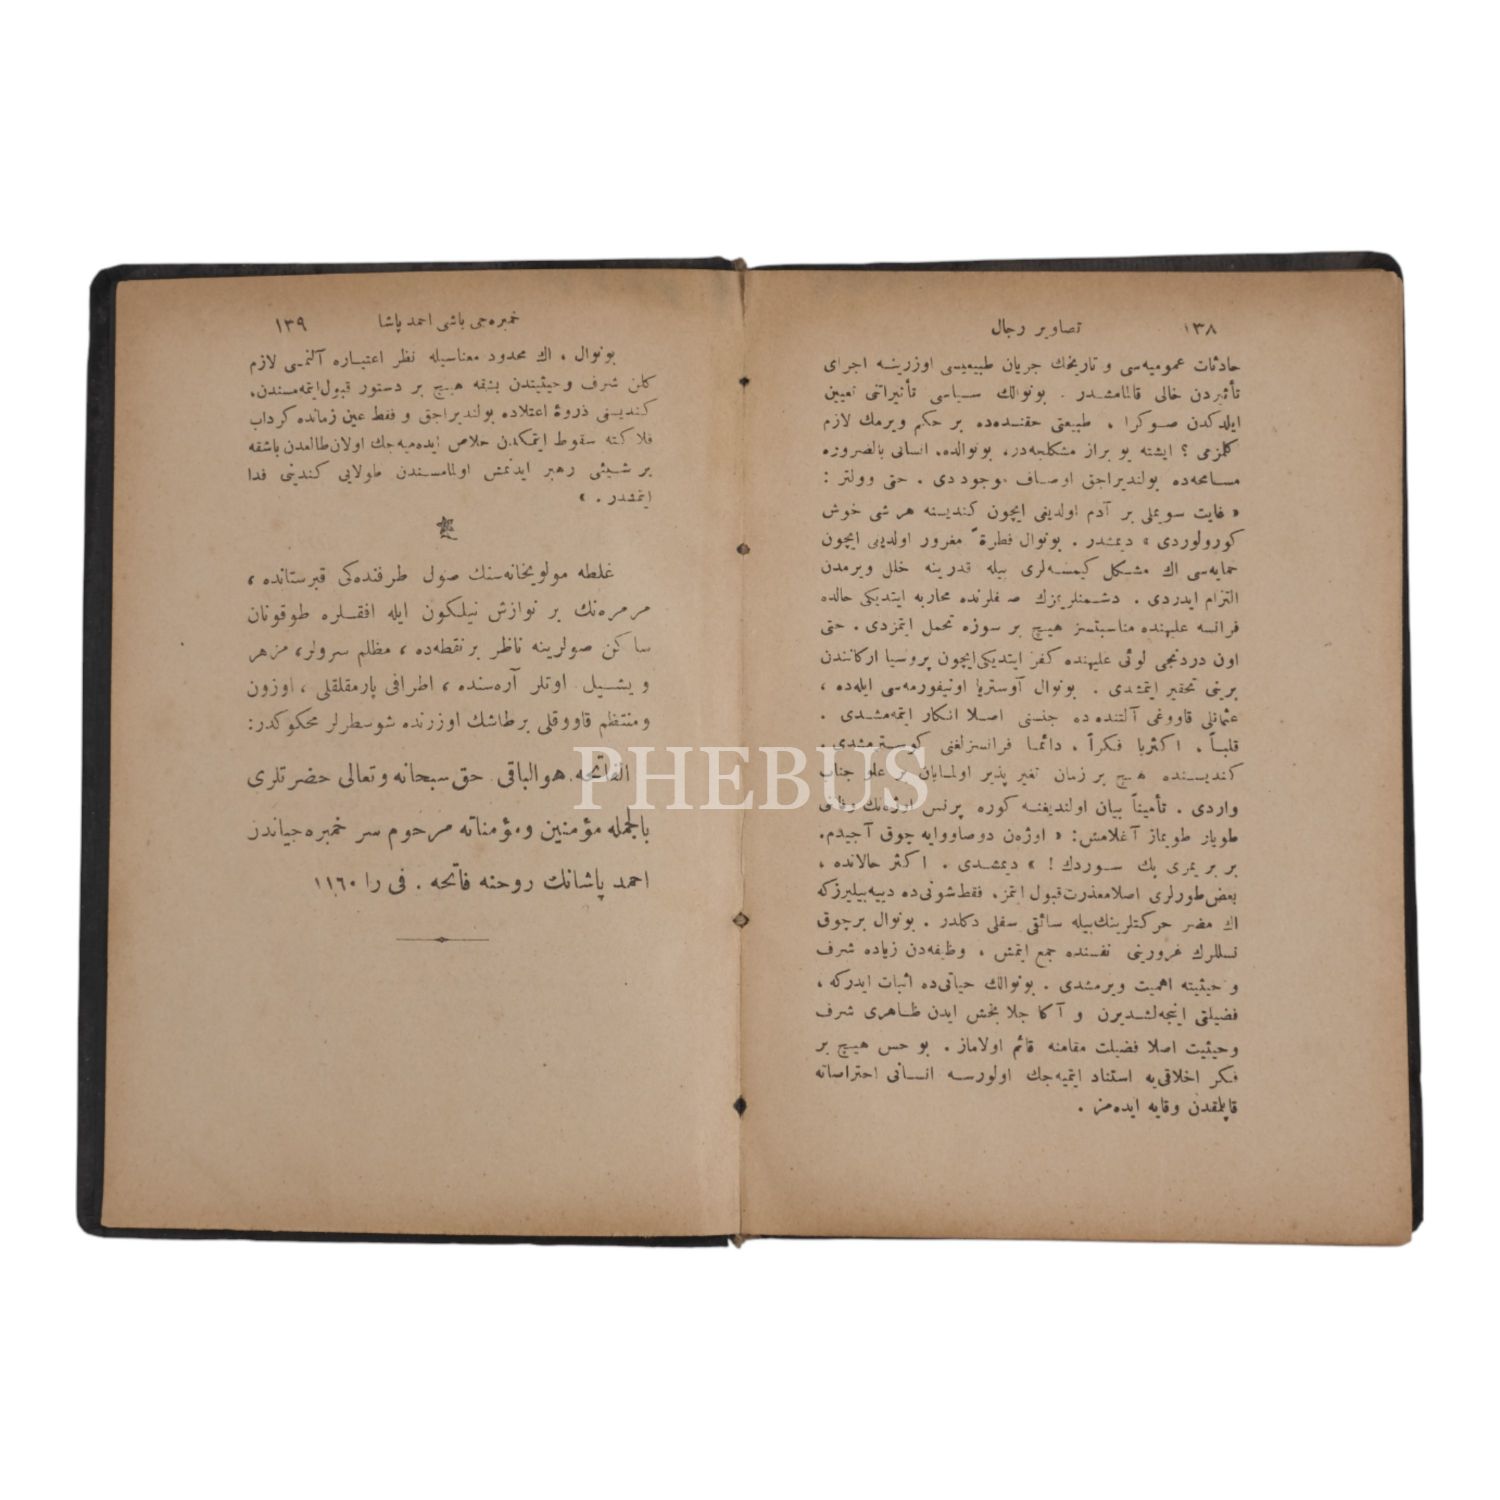 ١٣٨ تصاویر رجال
حادثات عمومیه‌سی و تاریخك جریان طبیعیسی اوزرینه اجرای
تأثیردن خالی قالمامشدر . بونوالك سیاسی تأثیراتنی تعیین
ایلدكدن صوكرا ، طبیعتی حقنده‌ده بر حكم ویرمك لازم
كلمزمی ؟ ایشته بو براز مشكلجه‌در. بونوالده، انسانی بالضروره
مسامحه‌ده بولندیراجق اوصاف موجوددی . حتی وولتر :
« غایت سویملی بر آدم اولدیغی ایچون كندیسنه هر شی خوش
كورولوردی » دیمشدر . بونوال فطرةً مغرور اولدیغی ایچون
حمایه‌سی اك مشكل كیمسه‌لری بیله قدرینه خلل ویرمدن
التزام ایدردی . دشمنلریمزك صفلرنده محاربه ایتدیكی حالده
فرانسه علیهنده مناسبتسز هیچ بر سوزه تحمل ایتمزدی . حتی
اون دردنجی لوئی علیهنده كفر ایتدیكی ایچون پروسیا اركانندن
برینی تحقیر ایتمشدی . بونوال آوستریا اونیفورمه‌سی ایله‌ده ،
عثمانلی قاووغی آلتنده ده جنسنی اصلا انكار ایتمه‌مشدی .
قلباً ، اكثریا فكراً ، دائما فرانسزلغنی كوسترمشدی .
كندیسنده هیچ بر زمان تغیر پذیر اولمایان بر علو جناب
واردی . تأمیناً بیان اولندیغنه كوره پرنس اوژه‌نك وفاتی
طویار طویماز آغلامش: « اوژه‌ن دوصاووایه چوق آجیدم.
بر بریمزی پك سوردك ! » دیمشدی . اكثر حالانده ،
بعض طورلری اصلا معذرت قبول ایتمز. فقط شونی‌ده دییه‌بیلیرزكه
اك مضر حركتلرینك بیله سائقی سفلی دكلدر . بونوال برچوق
نسللرك غرورینی نفسنده جمع ایتمش ، وظیفه‌دن زیاده شرف
و حیثیته اهمیت ویرمشدی . بونوالك حیاتی‌ده اثبات ایدركه ،
فضیلتی اینجه‌لشدیرن و آكا جلا بخش ایدن ظاهری شرف
وحیثیت اصلا فضیلت مقامنه قائم اولاماز . بو حس هیچ بر
فكر اخلاقی‌یه استناد ایتمیه‌جك اولورسه انسانی احتراصاته
قاپلمقدن وقایه ایده‌مز .
خمبره‌جی باشی احمد پاشا ١٣٩
بونوال ، اك محدود معناسیله نظر اعتباره آلنمسی لازم
كلن شرف و حیثیتدن بشقه هیچ بر دستور قبول ایتمه‌مسندن،
كندیسنی ذروۀ اعتلاده بولندیراجق و فقط عین زمانده كرداب
فلاكته سقوط ایتمكدن خلاص ایده‌میه‌جك اولان طالعدن باشقه
بر شیئی رهبر ایدنمش اولمامسندن طولایی كندینی فدا
ایتمشدر . »
غلطه مولویخانه‌سنك صول طرفنده‌كی قبرستانده ،
مرمره‌نك بر نوازش نیلكون ایله افقلره طوقونان
ساكن صولرینه ناظر بر نقطه‌ده ، مظلم سرولر، مزهر
و یشیل اوتلر آره‌سنده ، اطرافی پارمقلقلی ، اوزون
و منتظم قاووقلی بر طاشك اوزرنده شو سطرلر محكوكدر:
الفاتحه هو الباقی حق سبحانه و تعالی حضرتلری
بالجمله مؤمنین و مؤمناته مرحوم سر خمبره‌جیاندن
احمد پاشانك روحنه فاتحه . فی را ١١٦٠
PHEBUS